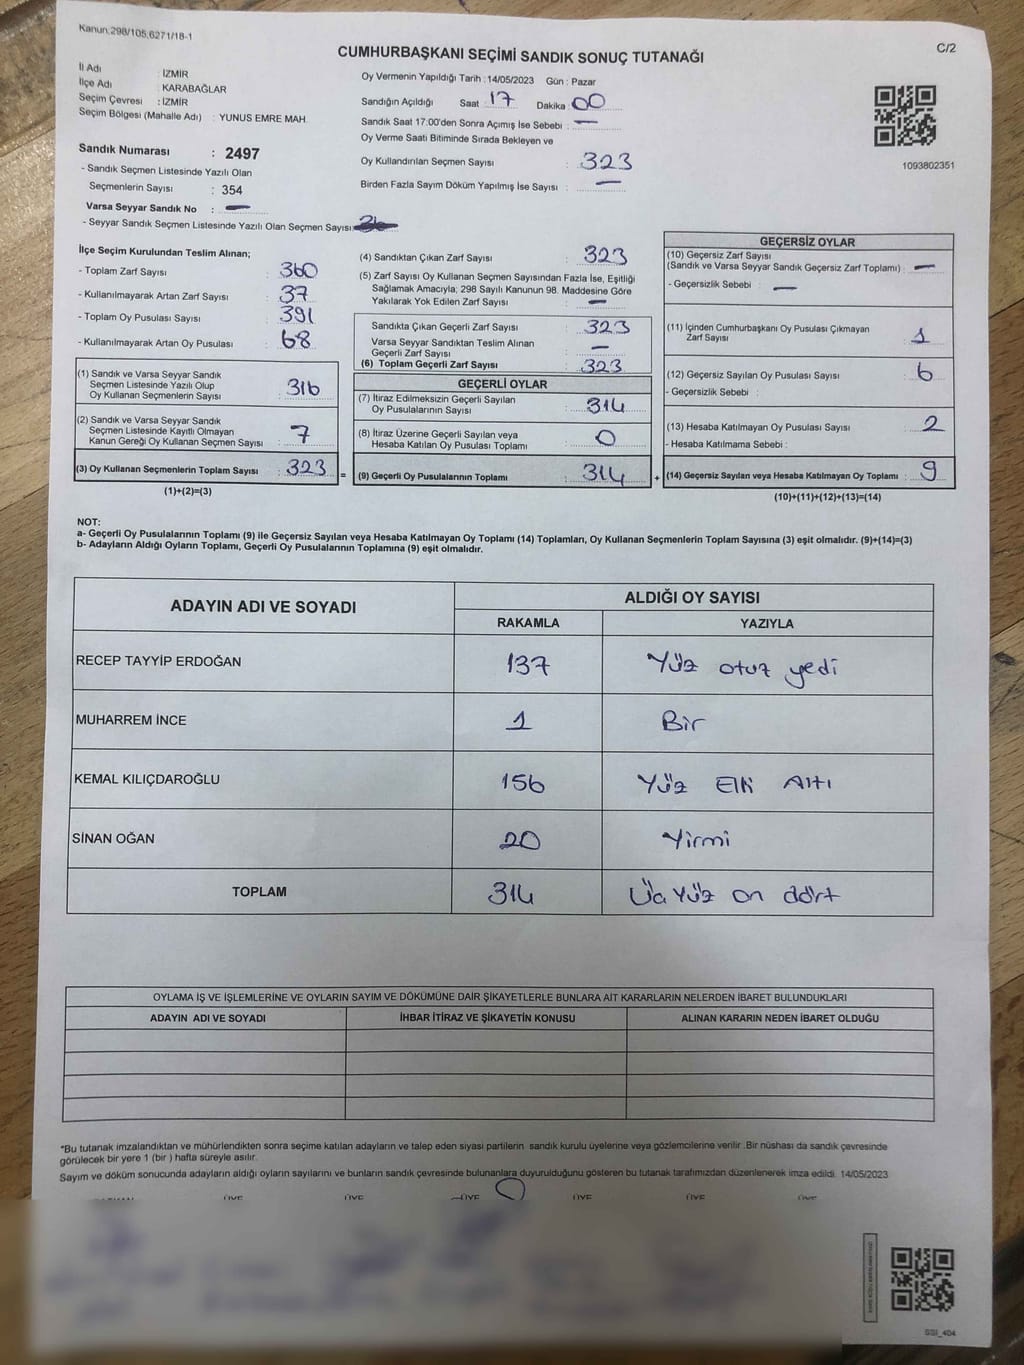 Kanun.298/105,6271/18-1
C/2
CUMHURBAŞKANI SEÇİMİ SANDIK SONUÇ TUTANAĞI
İl Adı : İZMİR
İlçe Adı : KARABAĞLAR
Seçim Çevresi : İZMİR
Seçim Bölgesi (Mahalle Adı) : YUNUS EMRE MAH.
Sandık Numarası : 2497
- Sandık Seçmen Listesinde Yazılı Olan
Seçmenlerin Sayısı : 354
Varsa Seyyar Sandık No : —
- Seyyar Sandık Seçmen Listesinde Yazılı Olan Seçmen Sayısı:
Oy Vermenin Yapıldığı Tarih : 14/05/2023 Gün : Pazar
Sandığın Açıldığı Saat : 17 Dakika : 00
Sandık Saat 17:00'den Sonra Açımış İse Sebebi : —
Oy Verme Saati Bitiminde Sırada Bekleyen ve
Oy Kullandırılan Seçmen Sayısı : 323
Birden Fazla Sayım Döküm Yapılmış İse Sayısı : —
1093802351
İlçe Seçim Kurulundan Teslim Alınan;
- Toplam Zarf Sayısı : 360
- Kullanılmayarak Artan Zarf Sayısı : 37
- Toplam Oy Pusulası Sayısı : 391
- Kullanılmayarak Artan Oy Pusulası : 68
(1) Sandık ve Varsa Seyyar Sandık
Seçmen Listesinde Yazılı Olup
Oy Kullanan Seçmenlerin Sayısı : 316
(2) Sandık ve Varsa Seyyar Sandık
Seçmen Listesinde Kayıtlı Olmayan
Kanun Gereği Oy Kullanan Seçmen Sayısı : 7
(3) Oy Kullanan Seçmenlerin Toplam Sayısı : 323
(1)+(2)=(3)
(4) Sandıktan Çıkan Zarf Sayısı : 323
(5) Zarf Sayısı Oy Kullanan Seçmen Sayısından Fazla İse, Eşitliği
Sağlamak Amacıyla; 298 Sayılı Kanunun 98. Maddesine Göre
Yakılarak Yok Edilen Zarf Sayısı : —
Sandıkta Çıkan Geçerli Zarf Sayısı : 323
Varsa Seyyar Sandıktan Teslim Alınan
Geçerli Zarf Sayısı : —
(6) Toplam Geçerli Zarf Sayısı : 323
GEÇERLİ OYLAR
(7) İtiraz Edilmeksizin Geçerli Sayılan
Oy Pusulalarının Sayısı : 314
(8) İtiraz Üzerine Geçerli Sayılan veya
Hesaba Katılan Oy Pusulası Toplamı : 0
= (9) Geçerli Oy Pusulalarının Toplamı : 314 +
GEÇERSİZ OYLAR
(10) Geçersiz Zarf Sayısı
(Sandık ve Varsa Seyyar Sandık Geçersiz Zarf Toplamı) : —
- Geçersizlik Sebebi : —
(11) İçinden Cumhurbaşkanı Oy Pusulası Çıkmayan
Zarf Sayısı : 1
(12) Geçersiz Sayılan Oy Pusulası Sayısı : 6
- Geçersizlik Sebebi :
(13) Hesaba Katılmayan Oy Pusulası Sayısı : 2
- Hesaba Katılmama Sebebi :
(14) Geçersiz Sayılan veya Hesaba Katılmayan Oy Toplamı : 9
(10)+(11)+(12)+(13)=(14)
NOT:
a- Geçerli Oy Pusulalarının Toplamı (9) ile Geçersiz Sayılan veya Hesaba Katılmayan Oy Toplamı (14) Toplamları, Oy Kullanan Seçmenlerin Toplam Sayısına (3) eşit olmalıdır. (9)+(14)=(3)
b- Adayların Aldığı Oyların Toplamı, Geçerli Oy Pusulalarının Toplamına (9) eşit olmalıdır.
ADAYIN ADI VE SOYADI
ALDIĞI OY SAYISI
RAKAMLA YAZIYLA
RECEP TAYYİP ERDOĞAN 137 Yüz otuz yedi
MUHARREM İNCE 1 Bir
KEMAL KILIÇDAROĞLU 156 Yüz Elli Altı
SİNAN OĞAN 20 Yirmi
TOPLAM 314 Üç Yüz on dört
OYLAMA İŞ VE İŞLEMLERİNE VE OYLARIN SAYIM VE DÖKÜMÜNE DAİR ŞİKAYETLERLE BUNLARA AİT KARARLARIN NELERDEN İBARET BULUNDUKLARI
ADAYIN ADI VE SOYADI İHBAR İTİRAZ VE ŞİKAYETİN KONUSU ALINAN KARARIN NEDEN İBARET OLDUĞU
*Bu tutanak imzalandıktan ve mühürlendikten sonra seçime katılan adayların ve talep eden siyasi partilerin sandık kurulu üyelerine veya gözlemcilerine verilir .Bir nüshası da sandık çevresinde
görülecek bir yere 1 (bir ) hafta süreyle asılır.
Sayım ve döküm sonucunda adayların aldığı oyların sayılarını ve bunların sandık çevresinde bulunanlara duyurulduğunu gösteren bu tutanak tarafımızdan düzenlenerek imza edildi. 14/05/2023
ÜYE ÜYE ÜYE ÜYE ÜYE ÜYE
SSI_404